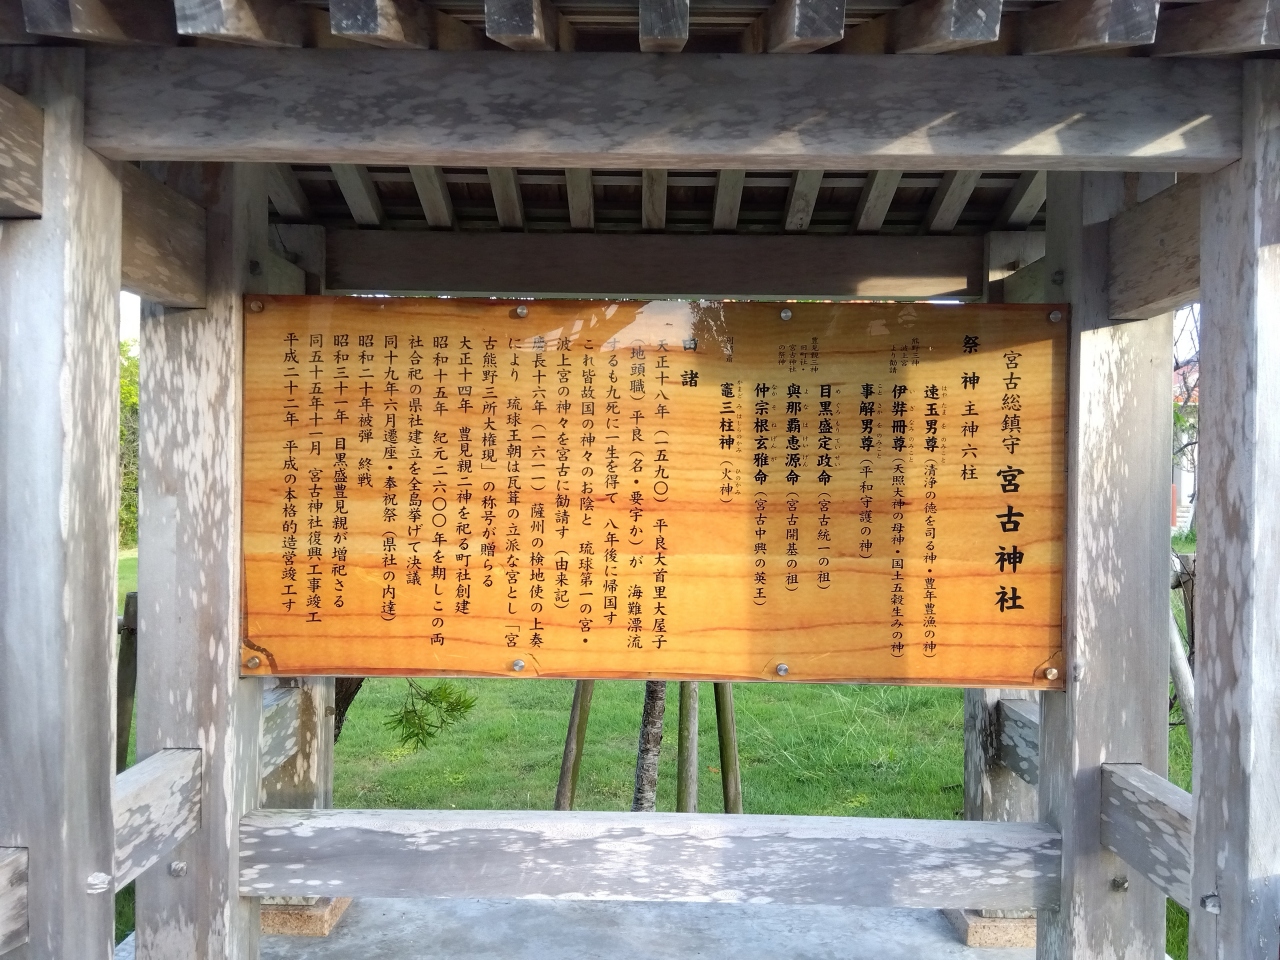 宮古総鎮守 宮古神社
祭神 主神六柱
熊野三神
波上宮
より勧請
速玉男尊(清浄の徳を司る神・豊年豊漁の神)
伊弉冊尊(天照大神の母神・国土五穀生みの神)
事解男尊(平和守護の神)
豊見親三神
旧町社・
宮古神社
の祭神
目黒盛定政命(宮古統一の祖)
與那覇恵源命(宮古開基の祖)
仲宗根玄雅命(宮古中興の英王)
竈三柱神(火神)
由緒
天正十八年(一五九〇) 平良大首里大屋子
(地頭職)平良(名・要字か)が 海難漂流
するも九死に一生を得て 八年後に帰国す
これ皆故国の神々のお陰と 琉球第一の宮・
波上宮の神々を宮古に勧請す(由来記)
慶長十六年(一六一一)薩州の検地使の上奏
により 琉球王朝は瓦葺の立派な宮とし「宮
古熊野三所大権現」の称号が贈らる
大正十四年 豊見親二神を祀る町社創建
昭和十五年 紀元二六〇〇年を期しこの両
社合祀の県社建立を全島挙げて決議
同十九年六月遷座・奉祝祭(県社の内達)
昭和二十年被弾 終戦
昭和三十一年 目黒盛豊見親が増祀さる
同五十五年十一月 宮古神社復興工事竣工
平成二十二年 平成の本格的造営竣工す